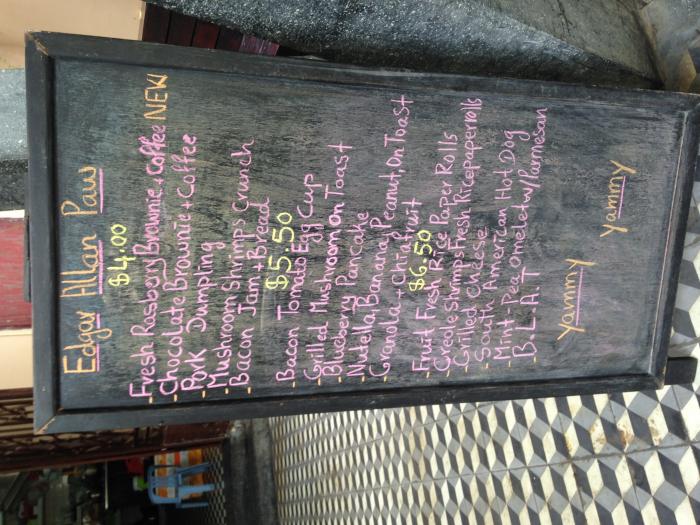 Edgar Allan Paw
$4.00
- Fresh Rasbery Brownie + Coffee NEW
- Chocolate Brownie + Coffee
- Pork Dumpling
- Mushroom Shrimps Crunch
- Bacon Jam + Bread
$5.50
- Bacon Tomato Egg Cup
- Grilled Mushroom on Toast
- Blueberry Pancake
- Nutella, Banana, Peanut, On Toast
- Granola + Chia fruit
$6.50
- Fruit Fresh Rice Paper Rolls
- Creole Shrimps Fresh Ricepaperrolls
- Grilled Cheese
- South American Hot Dog
- Mint-Pea Omelet w/Parmesan
- B.L.A.T
yammy yammy